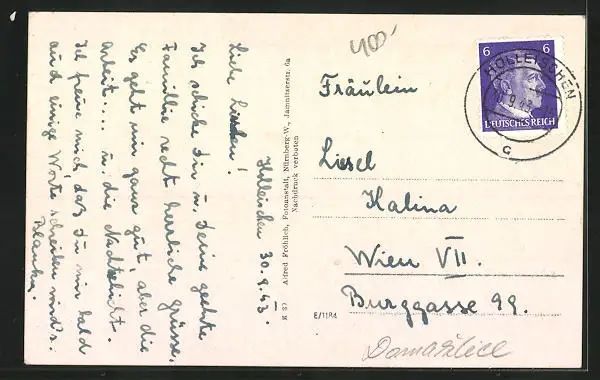 400.-
Holleischen 30.9.43.
Liebe !
Ich schicke Dir u. Deine geehrte
Familie recht herzliche Grüsse,
Es geht mir ganz gut, aber die
Arbeit.... u. die Nachtschicht.
Ich freue mich, daß Du mir bald
auch einige Worte schreiben wird's.
K 37 Alfred Fröhlich, Fotoanstalt, Nürnberg-W., Jamnitzerstr. 6a
Nachdruck verboten
6 6
DEUTSCHES REICH
HOLLEISCHEN
c
Fräulein
Liesel
Kalina
Wien VII.
Burggasse 99.
E/1184
Domažlice